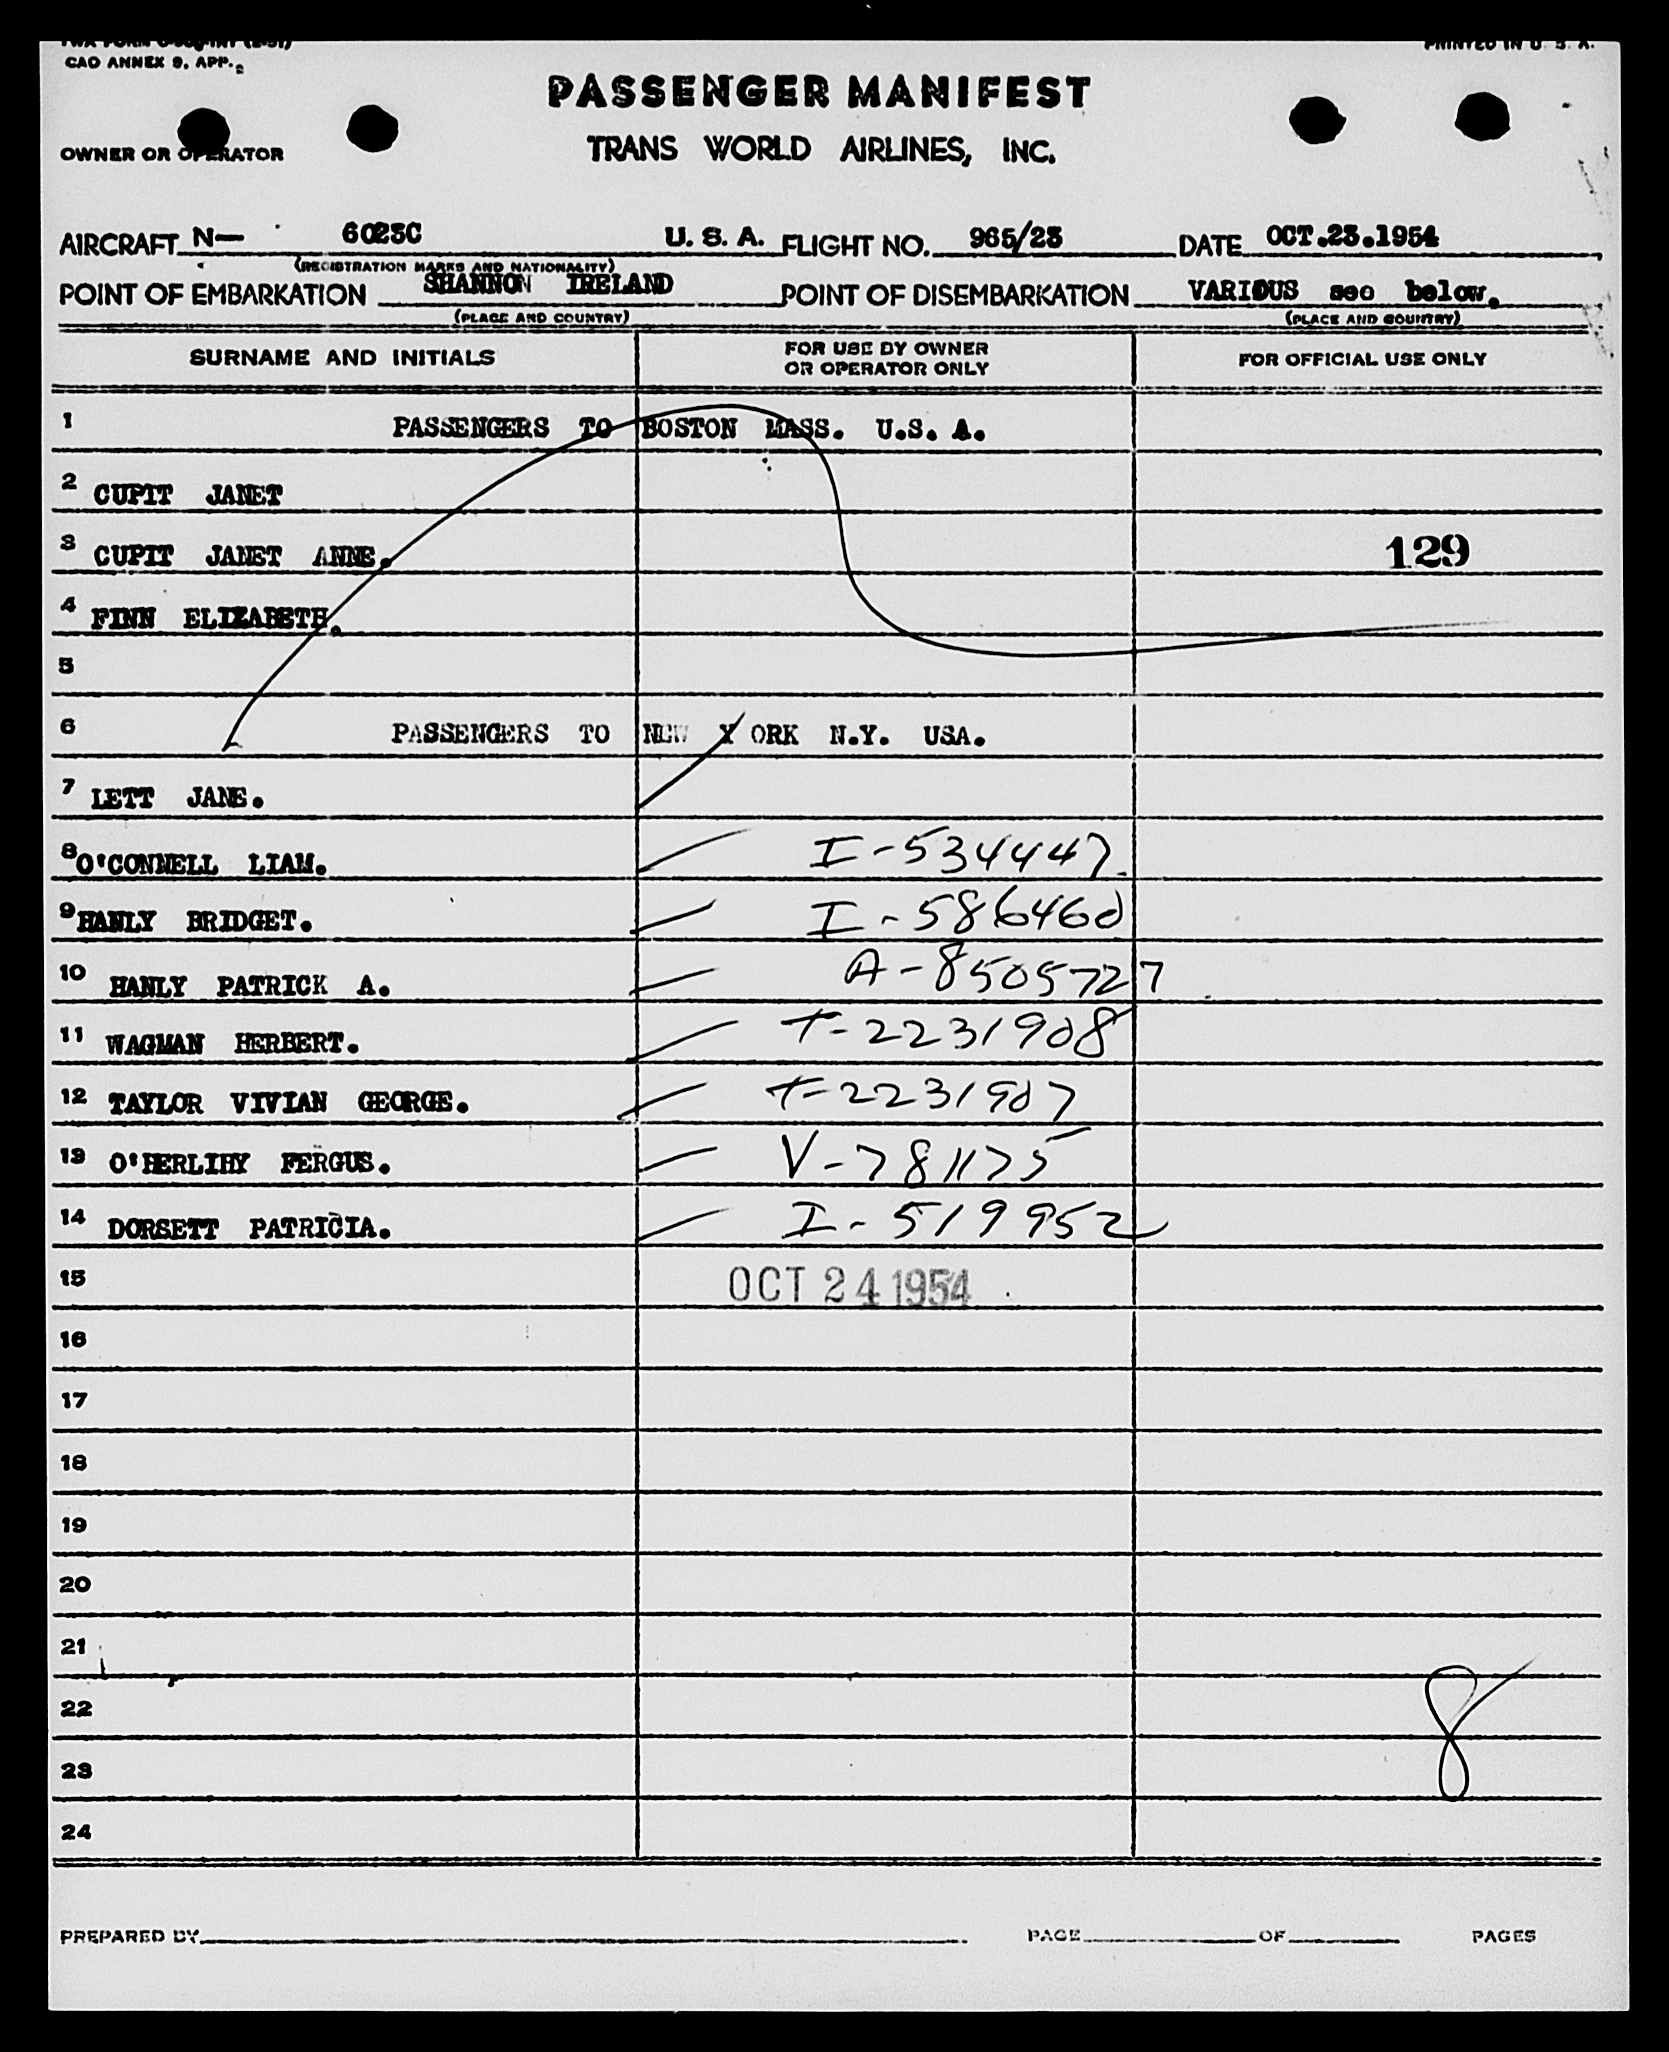 CAO ANNEX 9, APP. 2
PRINTED IN U. S. A.
PASSENGER MANIFEST
OWNER OR OPERATOR
TRANS WORLD AIRLINES, INC.
AIRCRAFT N— 6023C U. S. A. FLIGHT NO. 965/23 DATE OCT.23.1954
(REGISTRATION MARKS AND NATIONALITY)
POINT OF EMBARKATION SHANNON IRELAND POINT OF DISEMBARKATION VARIOUS see below.
(PLACE AND COUNTRY) (PLACE AND COUNTRY)
SURNAME AND INITIALS FOR USE BY OWNER OR OPERATOR ONLY FOR OFFICIAL USE ONLY
1 PASSENGERS TO BOSTON MASS. U.S. A.
2 CUPIT JANET
3 CUPIT JANET ANNE. 129
4 FINN ELIZABETH.
5
6 PASSENGERS TO NEW Y ORK N.Y. USA.
7 LETT JANE.
8 O'CONNELL LIAM. I-534447
9 HANLY BRIDGET. I-586460
10 HANLY PATRICK A. A-8505727
11 WAGMAN HERBERT. T-2231908
12 TAYLOR VIVIAN GEORGE. T-2231907
13 O'HERLIHY FERGUS. V-781175
14 DORSETT PATRICIA. I-519952
15 OCT 24 1954
16
17
18
19
20
21
22 8
23
24
PREPARED BY PAGE OF PAGES